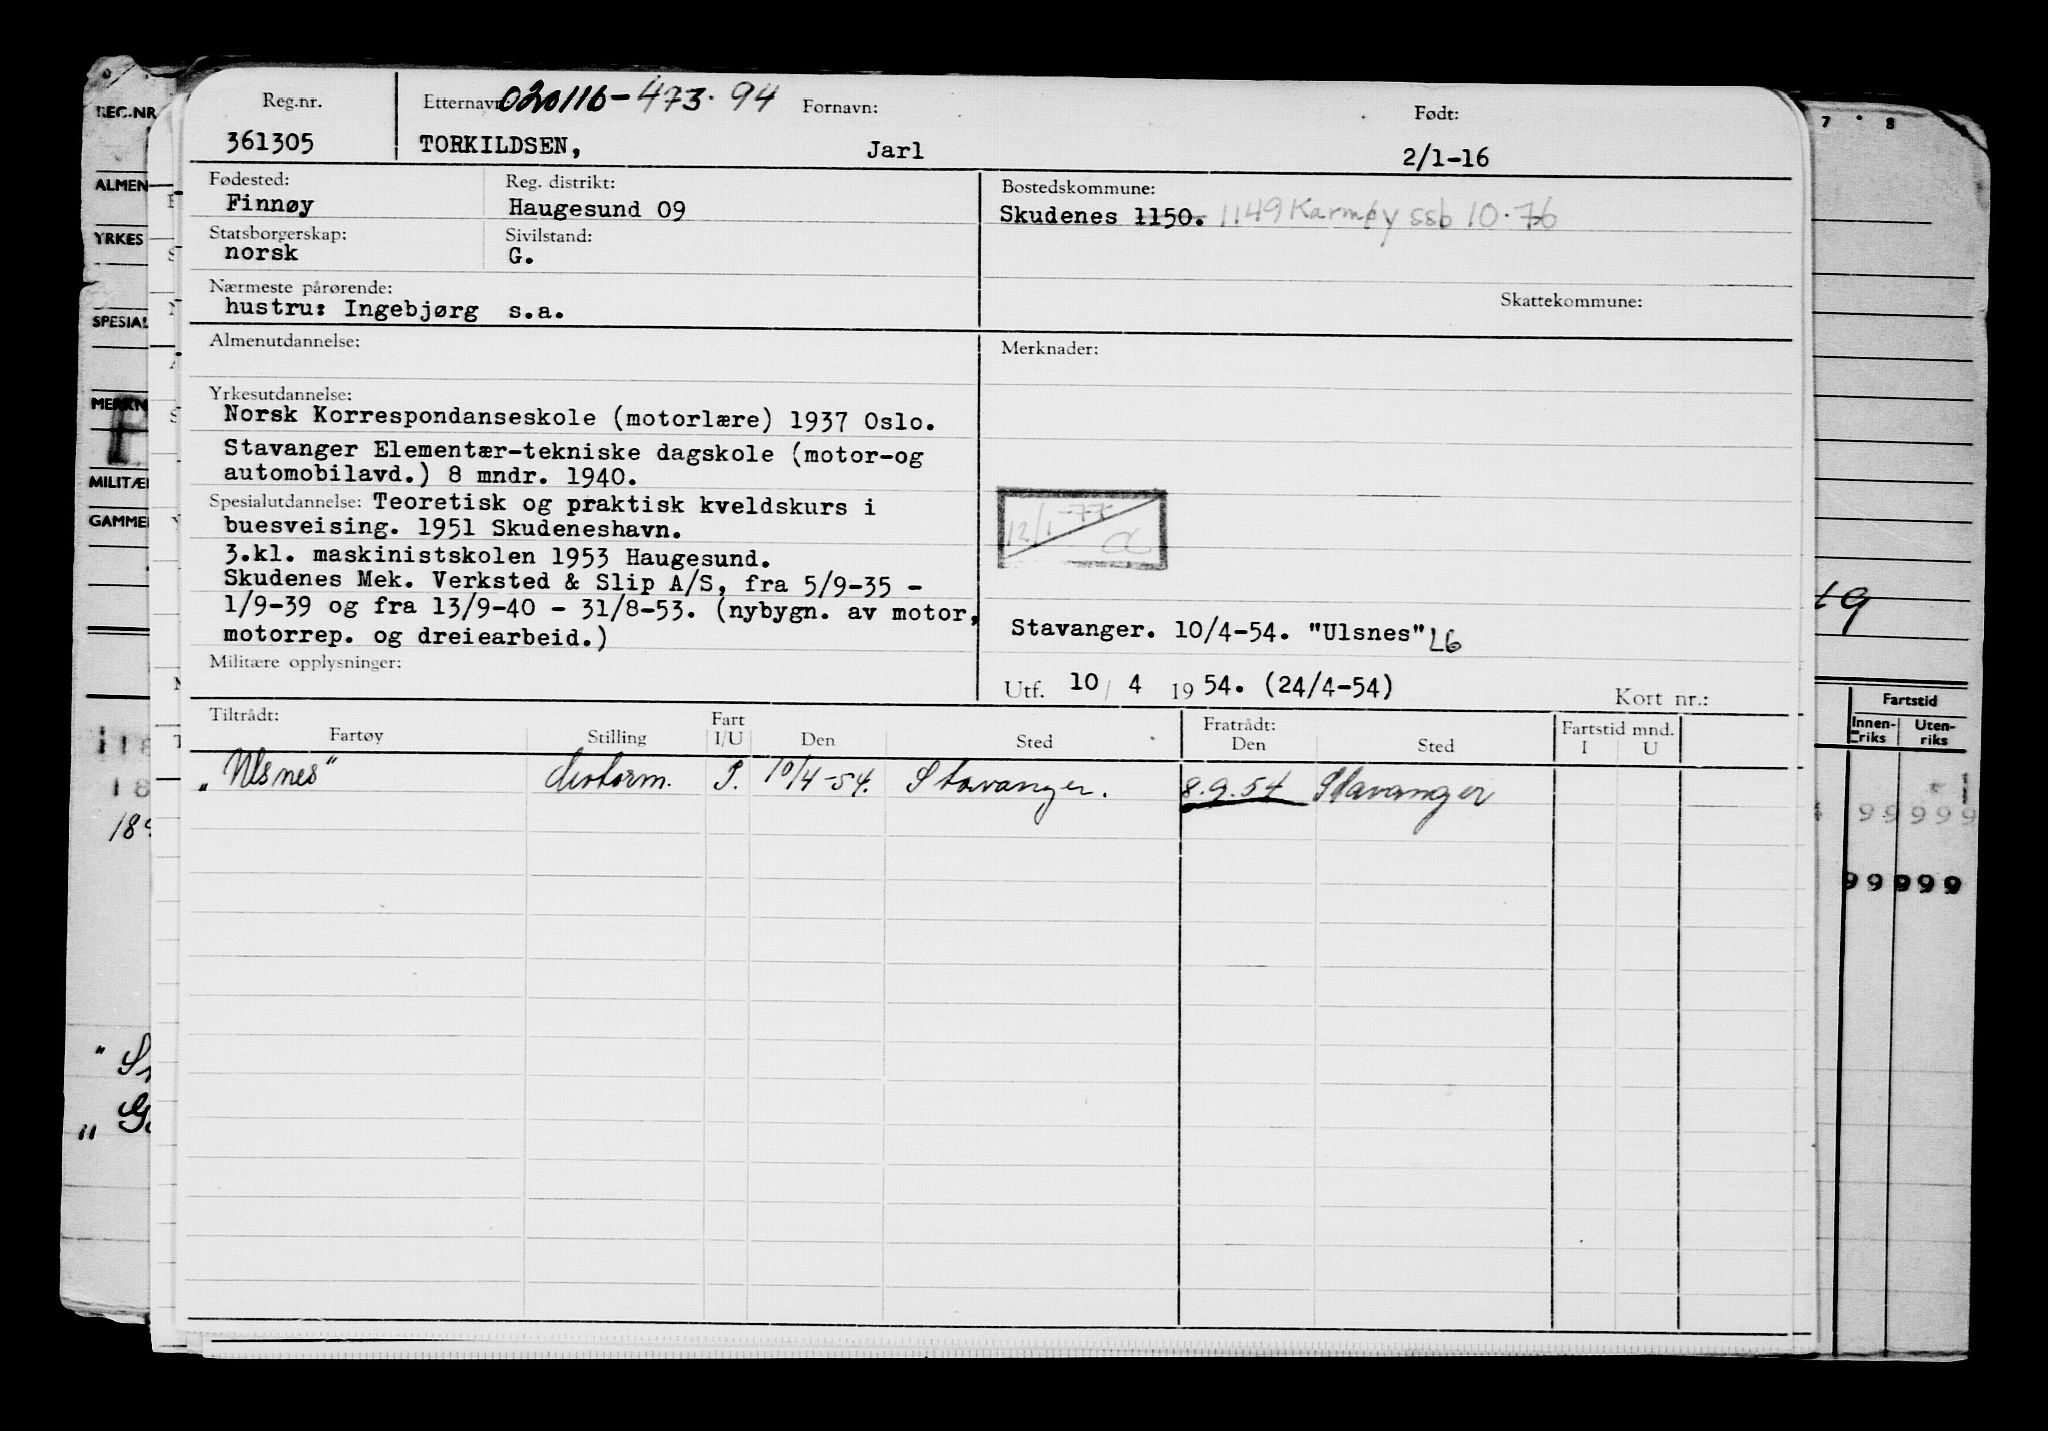 Reg.nr. Etternavn 020116-473.94 Fornavn: Født:
361305 TORKILDSEN, Jarl 2/1-16
Fødested: Reg. distrikt: Bostedskommune:
Finnøy Haugesund 09 Skudenes 1150. 1149 Karmøy ssb 10.76
Statsborgerskap: Sivilstand:
norsk G.
Nærmeste pårørende: Skattekommune:
hustru: Ingebjørg s.a.
Almenutdannelse: Merknader:
Yrkesutdannelse:
Norsk Korrespondanseskole (motorlære) 1937 Oslo.
Stavanger Elementær-tekniske dagskole (motor-og
automobilavd.) 8 mndr. 1940.
Spesialutdannelse: Teoretisk og praktisk kveldskurs i
buesveising. 1951 Skudeneshavn.
3.kl. maskinistskolen 1953 Haugesund.
Skudenes Mek. Verksted & Slip A/S, fra 5/9-35 -
1/9-39 og fra 13/9-40 - 31/8-53. (nybygn. av motor,
motorrep. og dreiearbeid.)
12/1 -77
Stavanger. 10/4-54. "Ulsnes" L6
Militære opplysninger:
Utf. 10 / 4 19 54. (24/4-54) Kort nr.:
Tiltrådt: Fart Fratrådt: Fartstid mnd.
Fartøy Stilling I/U Den Sted Den Sted I U
"Ulsnes" Motorm. I. 10/4-54. Stavanger. 8.9.54 Stavanger
REG.NR
ALMEN
YRKES
SPESIAL
MERKN
MILITÆR
GAMMEL
7 8
Fartstid
Innen-
riks
Uten-
riks
99999
99999